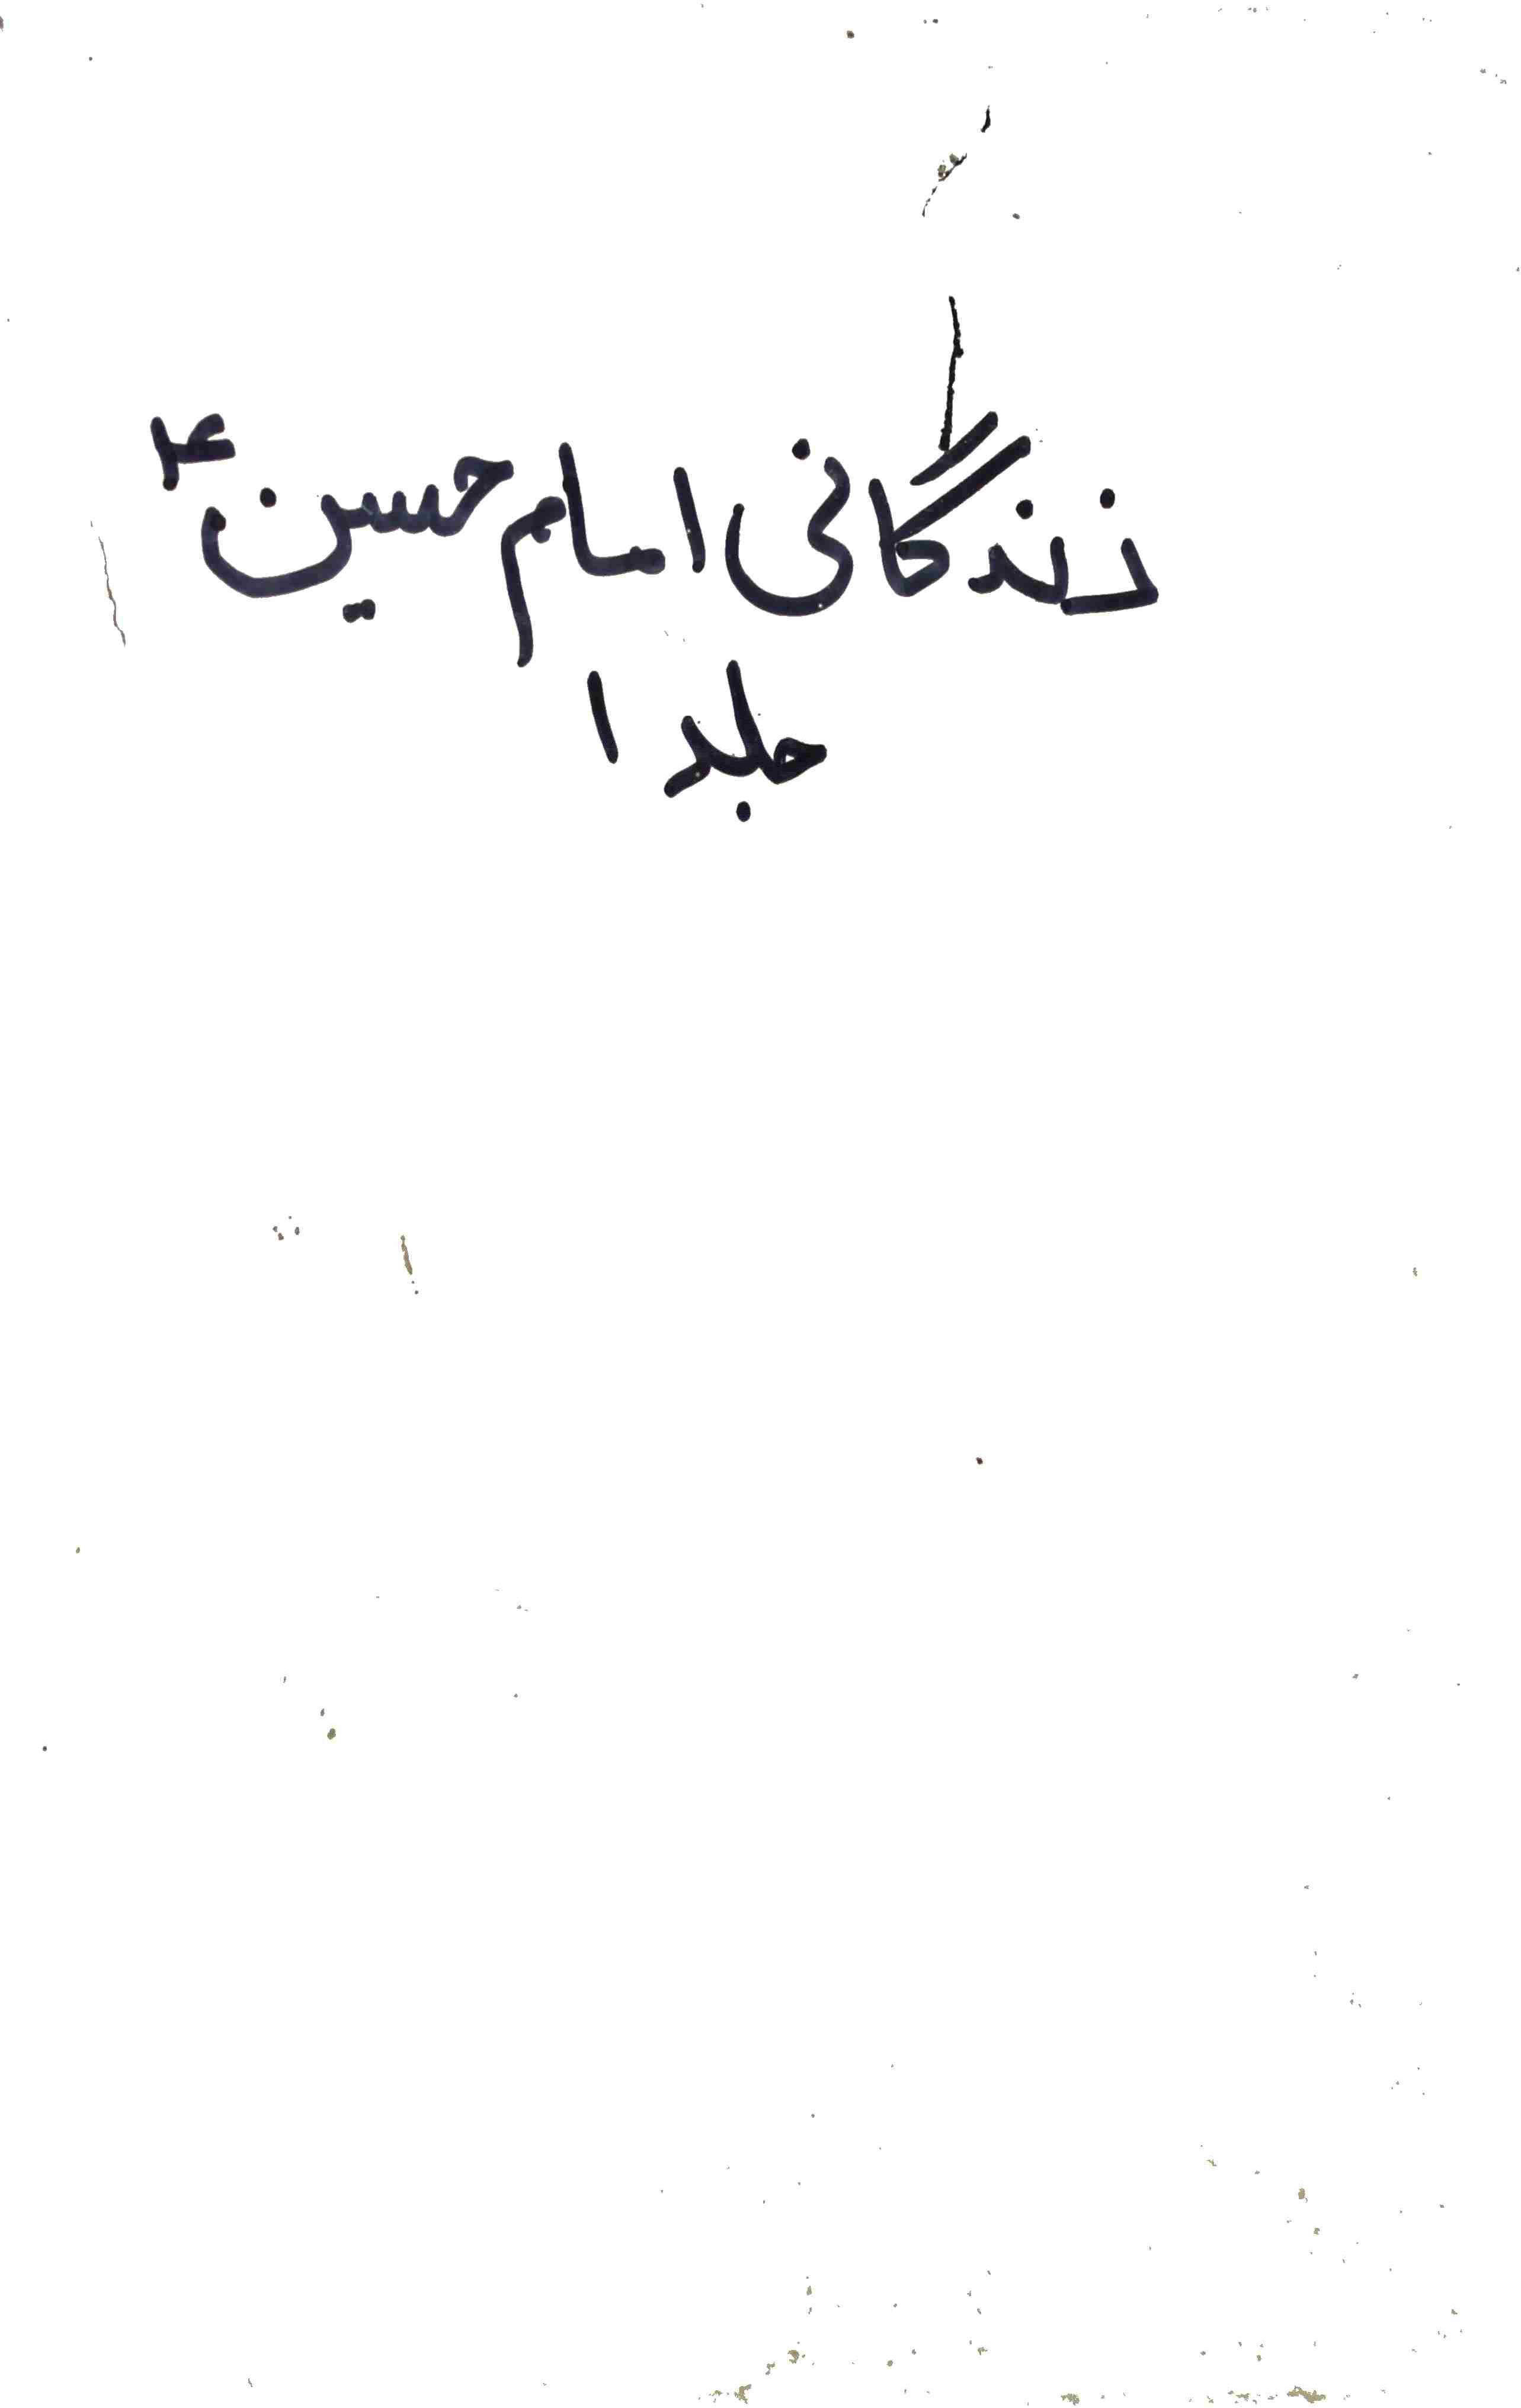 زندگانی امام حسین ع
جلد ۱